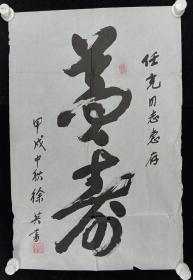 任克同志惠存
万寿
甲戌中秋徐英书